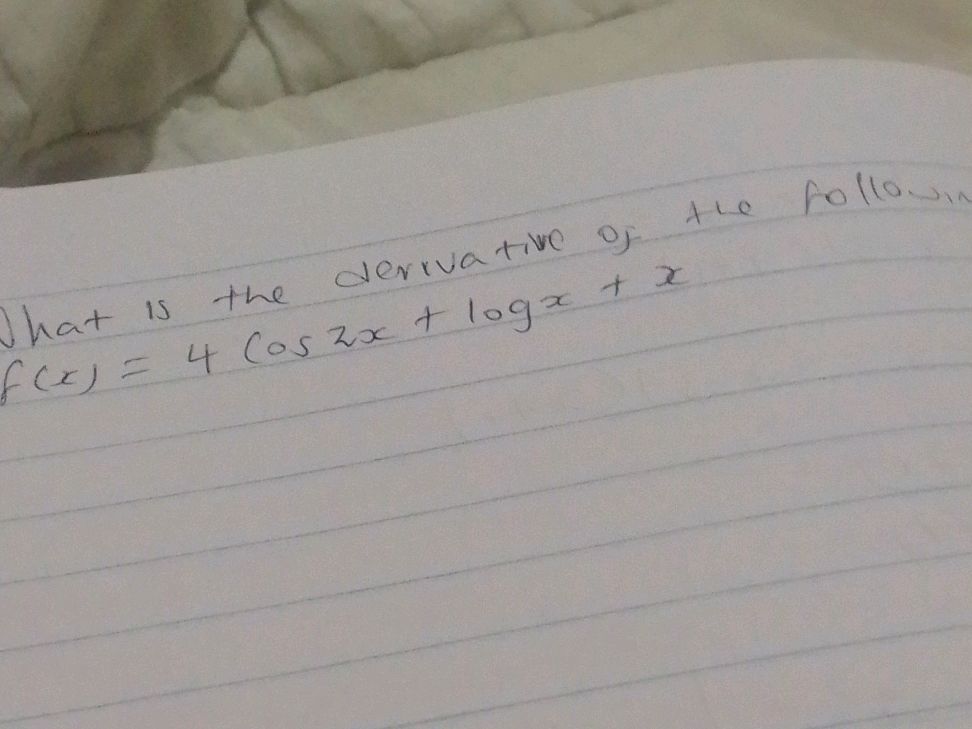 What is the derivative of the followin
f(x) = 4 Cos 2x + logx + x